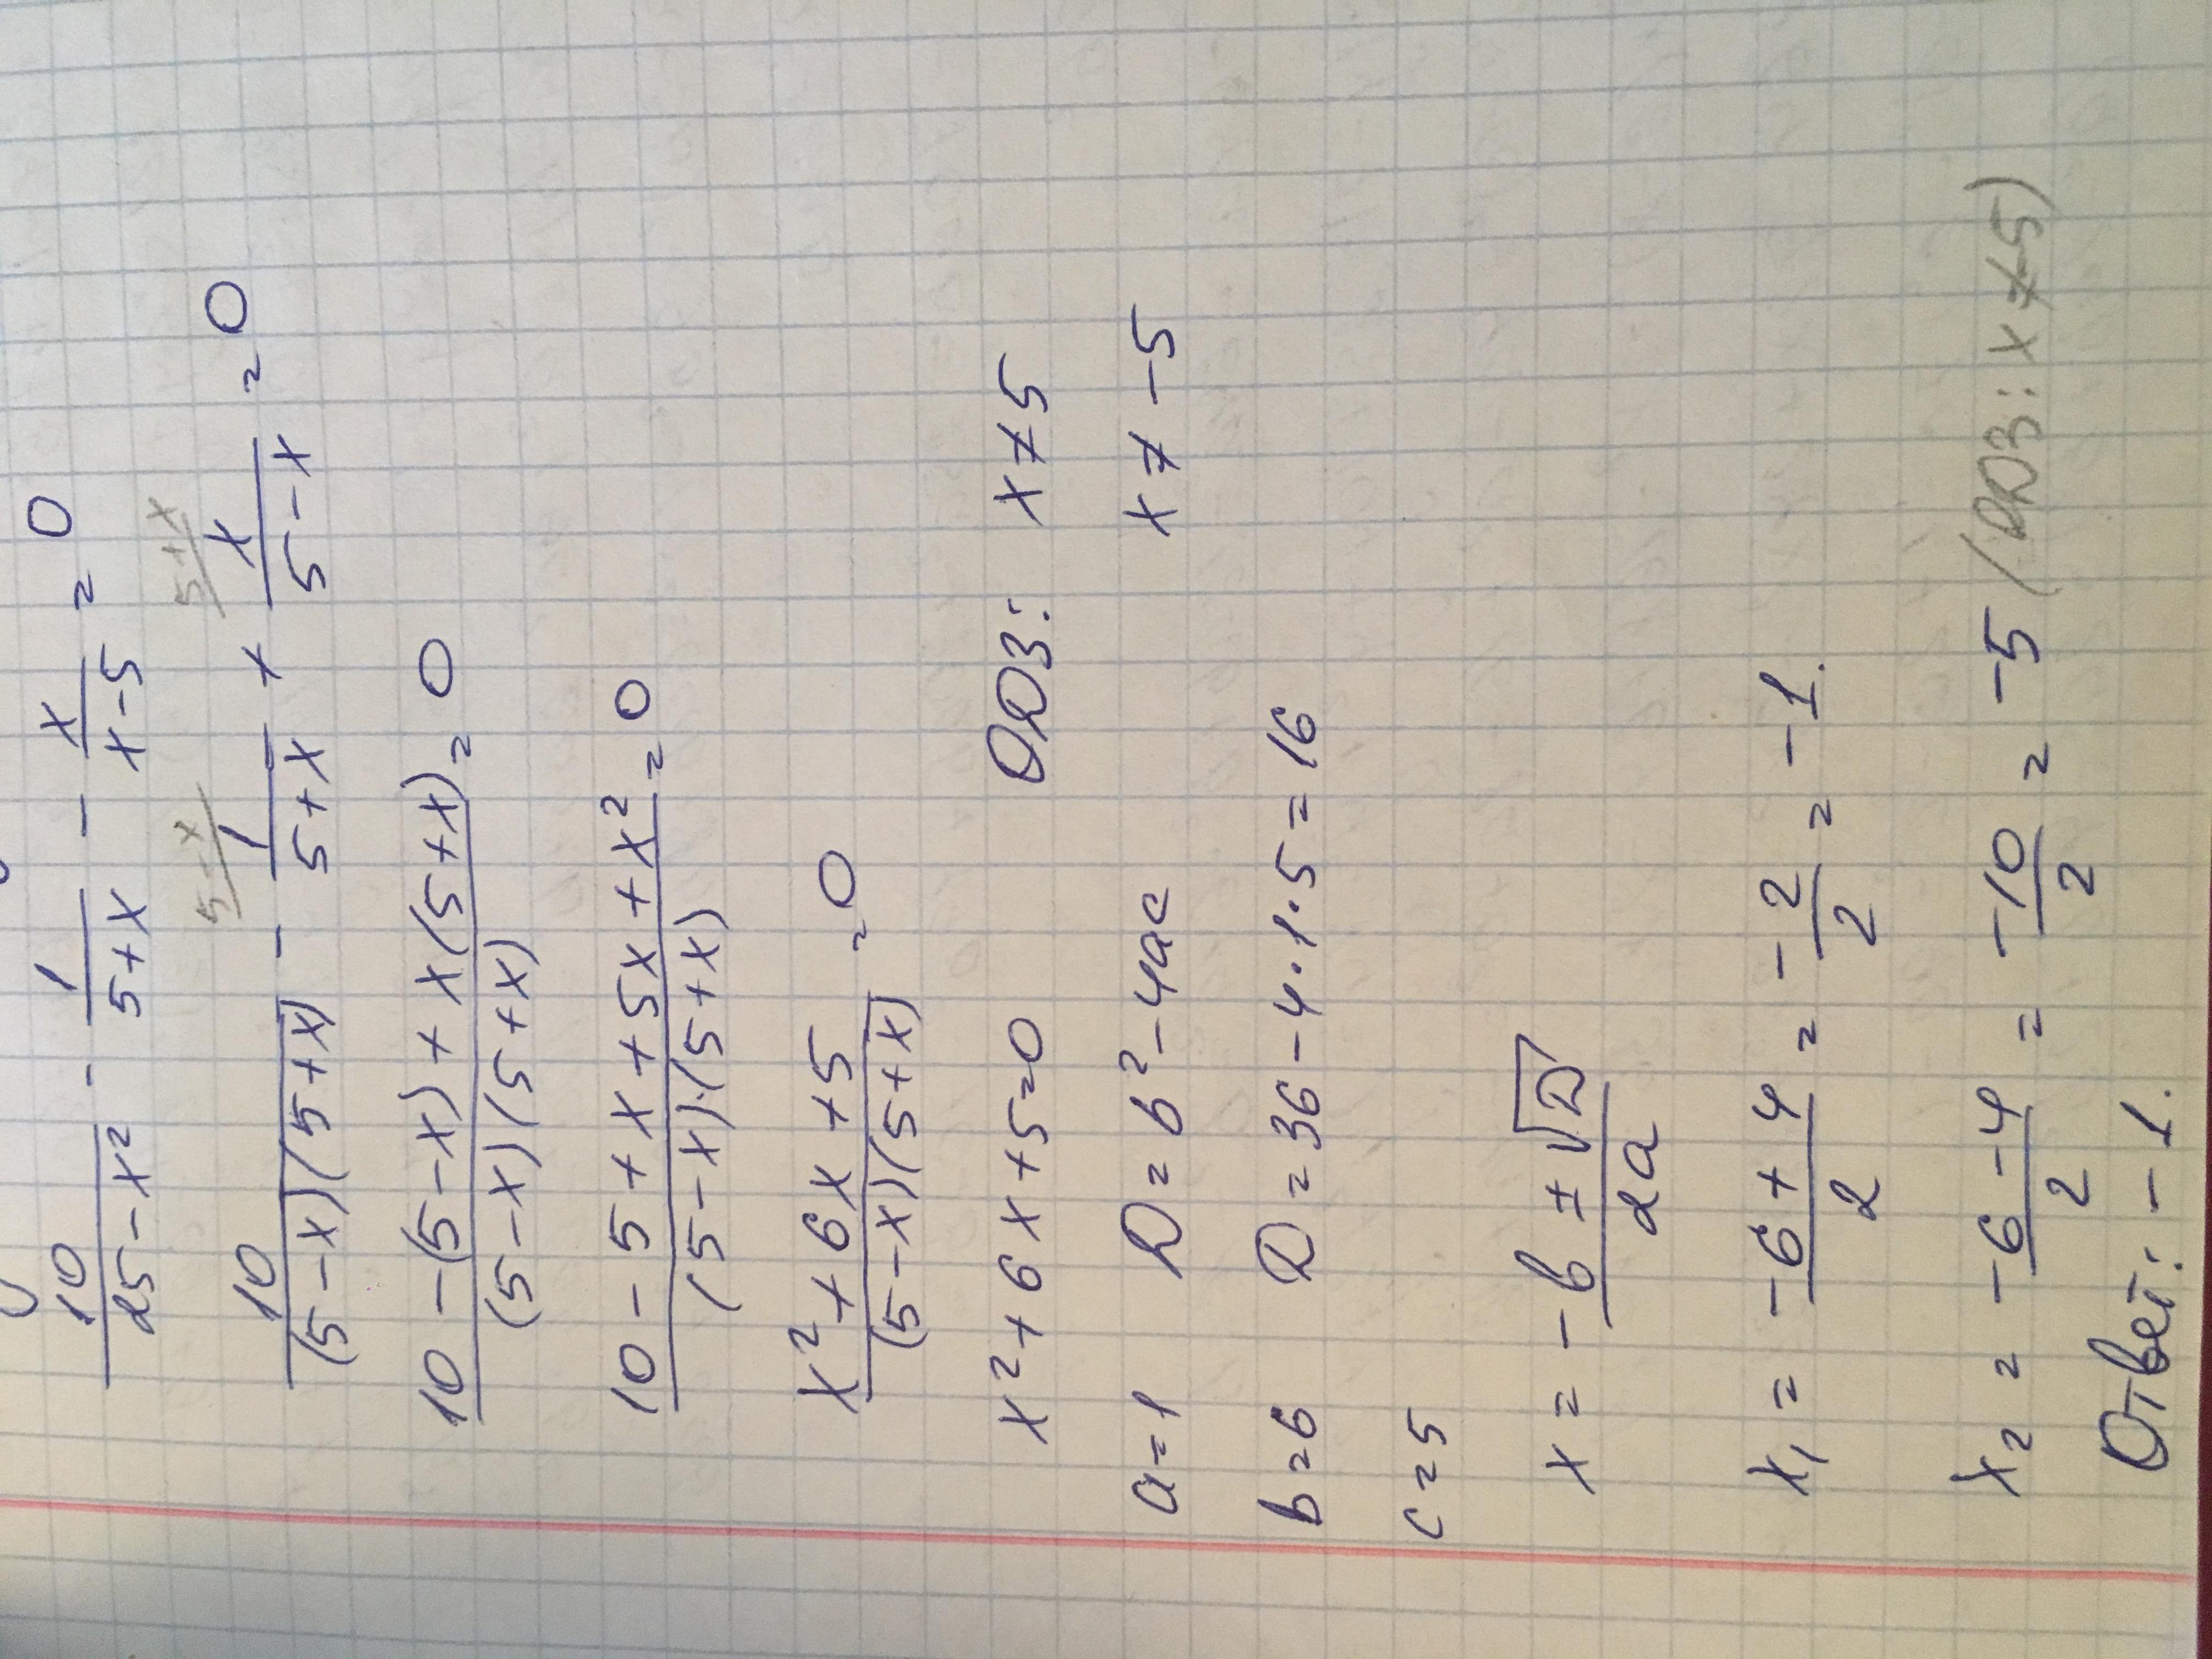 10/(25-x²) - 1/(5+x) - x/(x-5) = 0
5-x 5+x
10/((5-x)(5+x)) - 1/(5+x) + x/(5-x) = 0
(10-(5-x)+x(5+x))/((5-x)(5+x)) = 0
(10-5+x+5x+x²)/((5-x)·(5+x)) = 0
(x²+6x+5)/((5-x)(5+x)) = 0
x²+6x+5=0 ОДЗ: x≠5
a=1 D=b²-4ac x≠-5
b=6 D=36-4·1·5=16
c=5
x = (-b±√D)/2a
x₁ = (-6+4)/2 = -2/2 = -1.
x₂ = (-6-4)/2 = -10/2 = -5 (ОДЗ: x≠-5)
Ответ: -1.